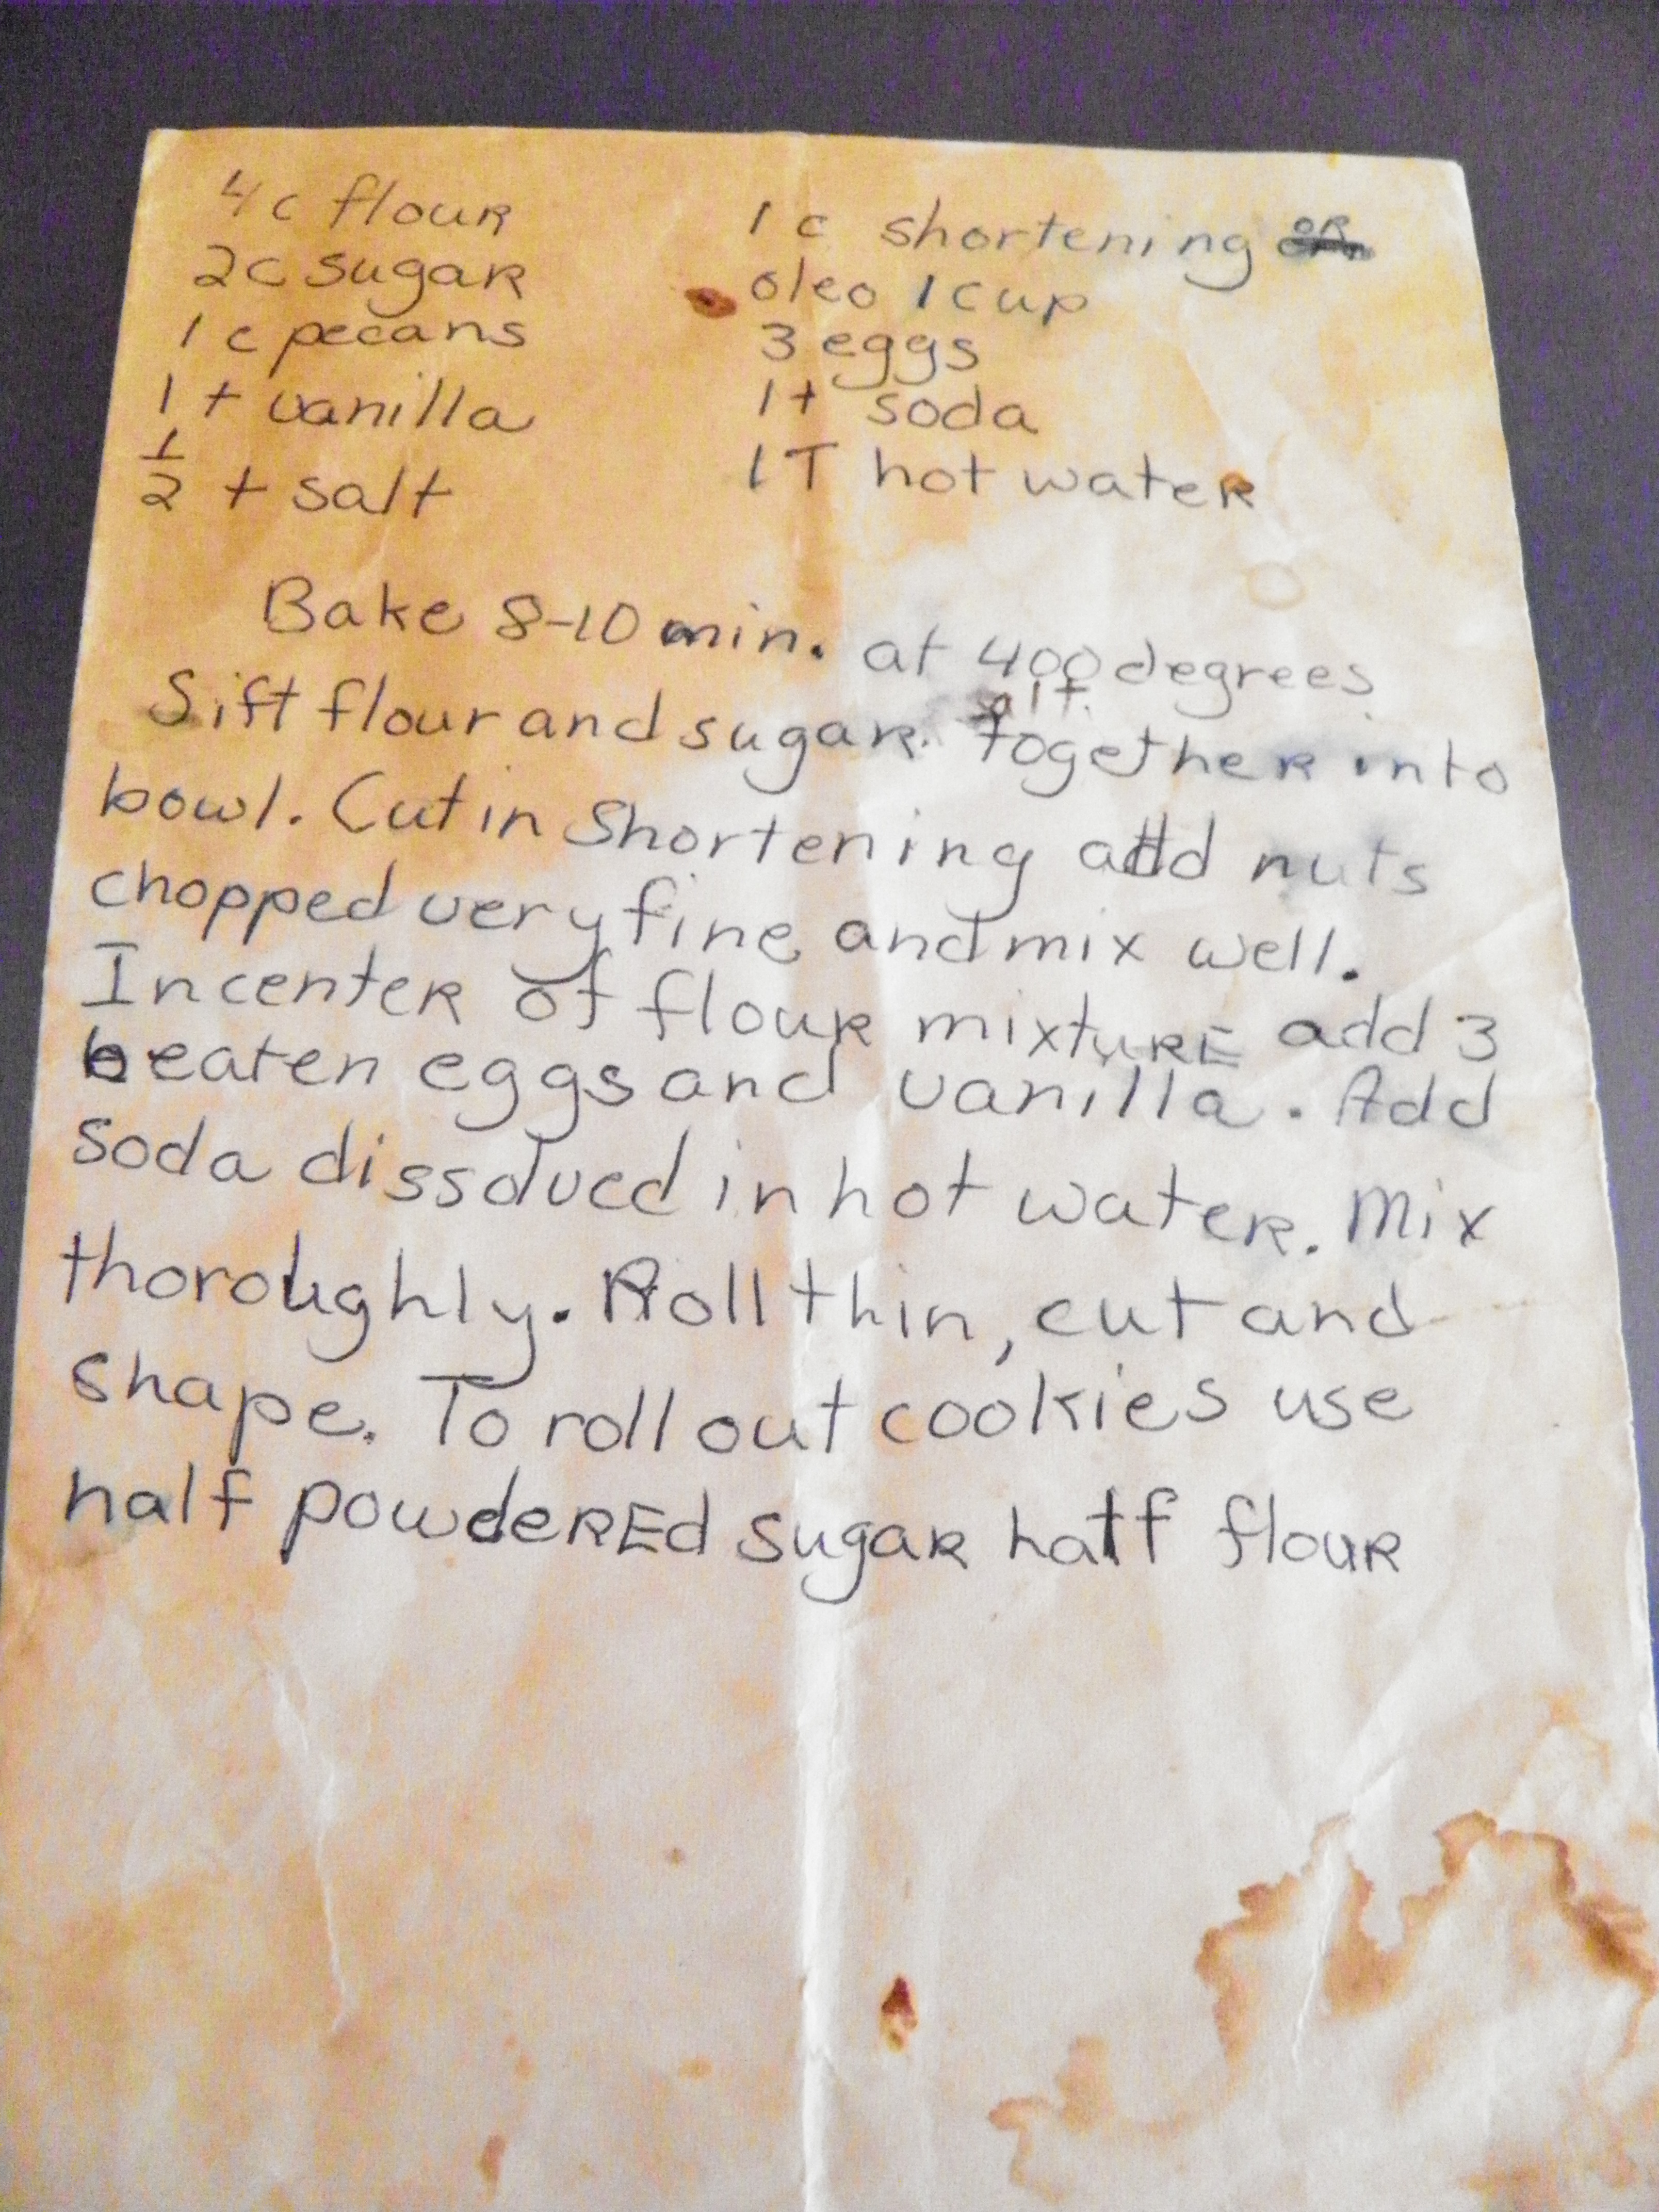 4 c flour
2 c sugar
1 c pecans
1 t vanilla
1/2 t salt
1 c shortening OR
oleo 1 cup
3 eggs
1 t soda
1 T hot water
Bake 8-10 min. at 400 degrees
Sift flour and sugar. salt. together into
bowl. Cut in shortening add nuts
chopped very fine and mix well.
In center of flour mixture add 3
beaten eggs and vanilla. Add
soda dissolved in hot water. Mix
thoroughly. Roll thin, cut and
shape. To roll out cookies use
half powdered sugar half flour